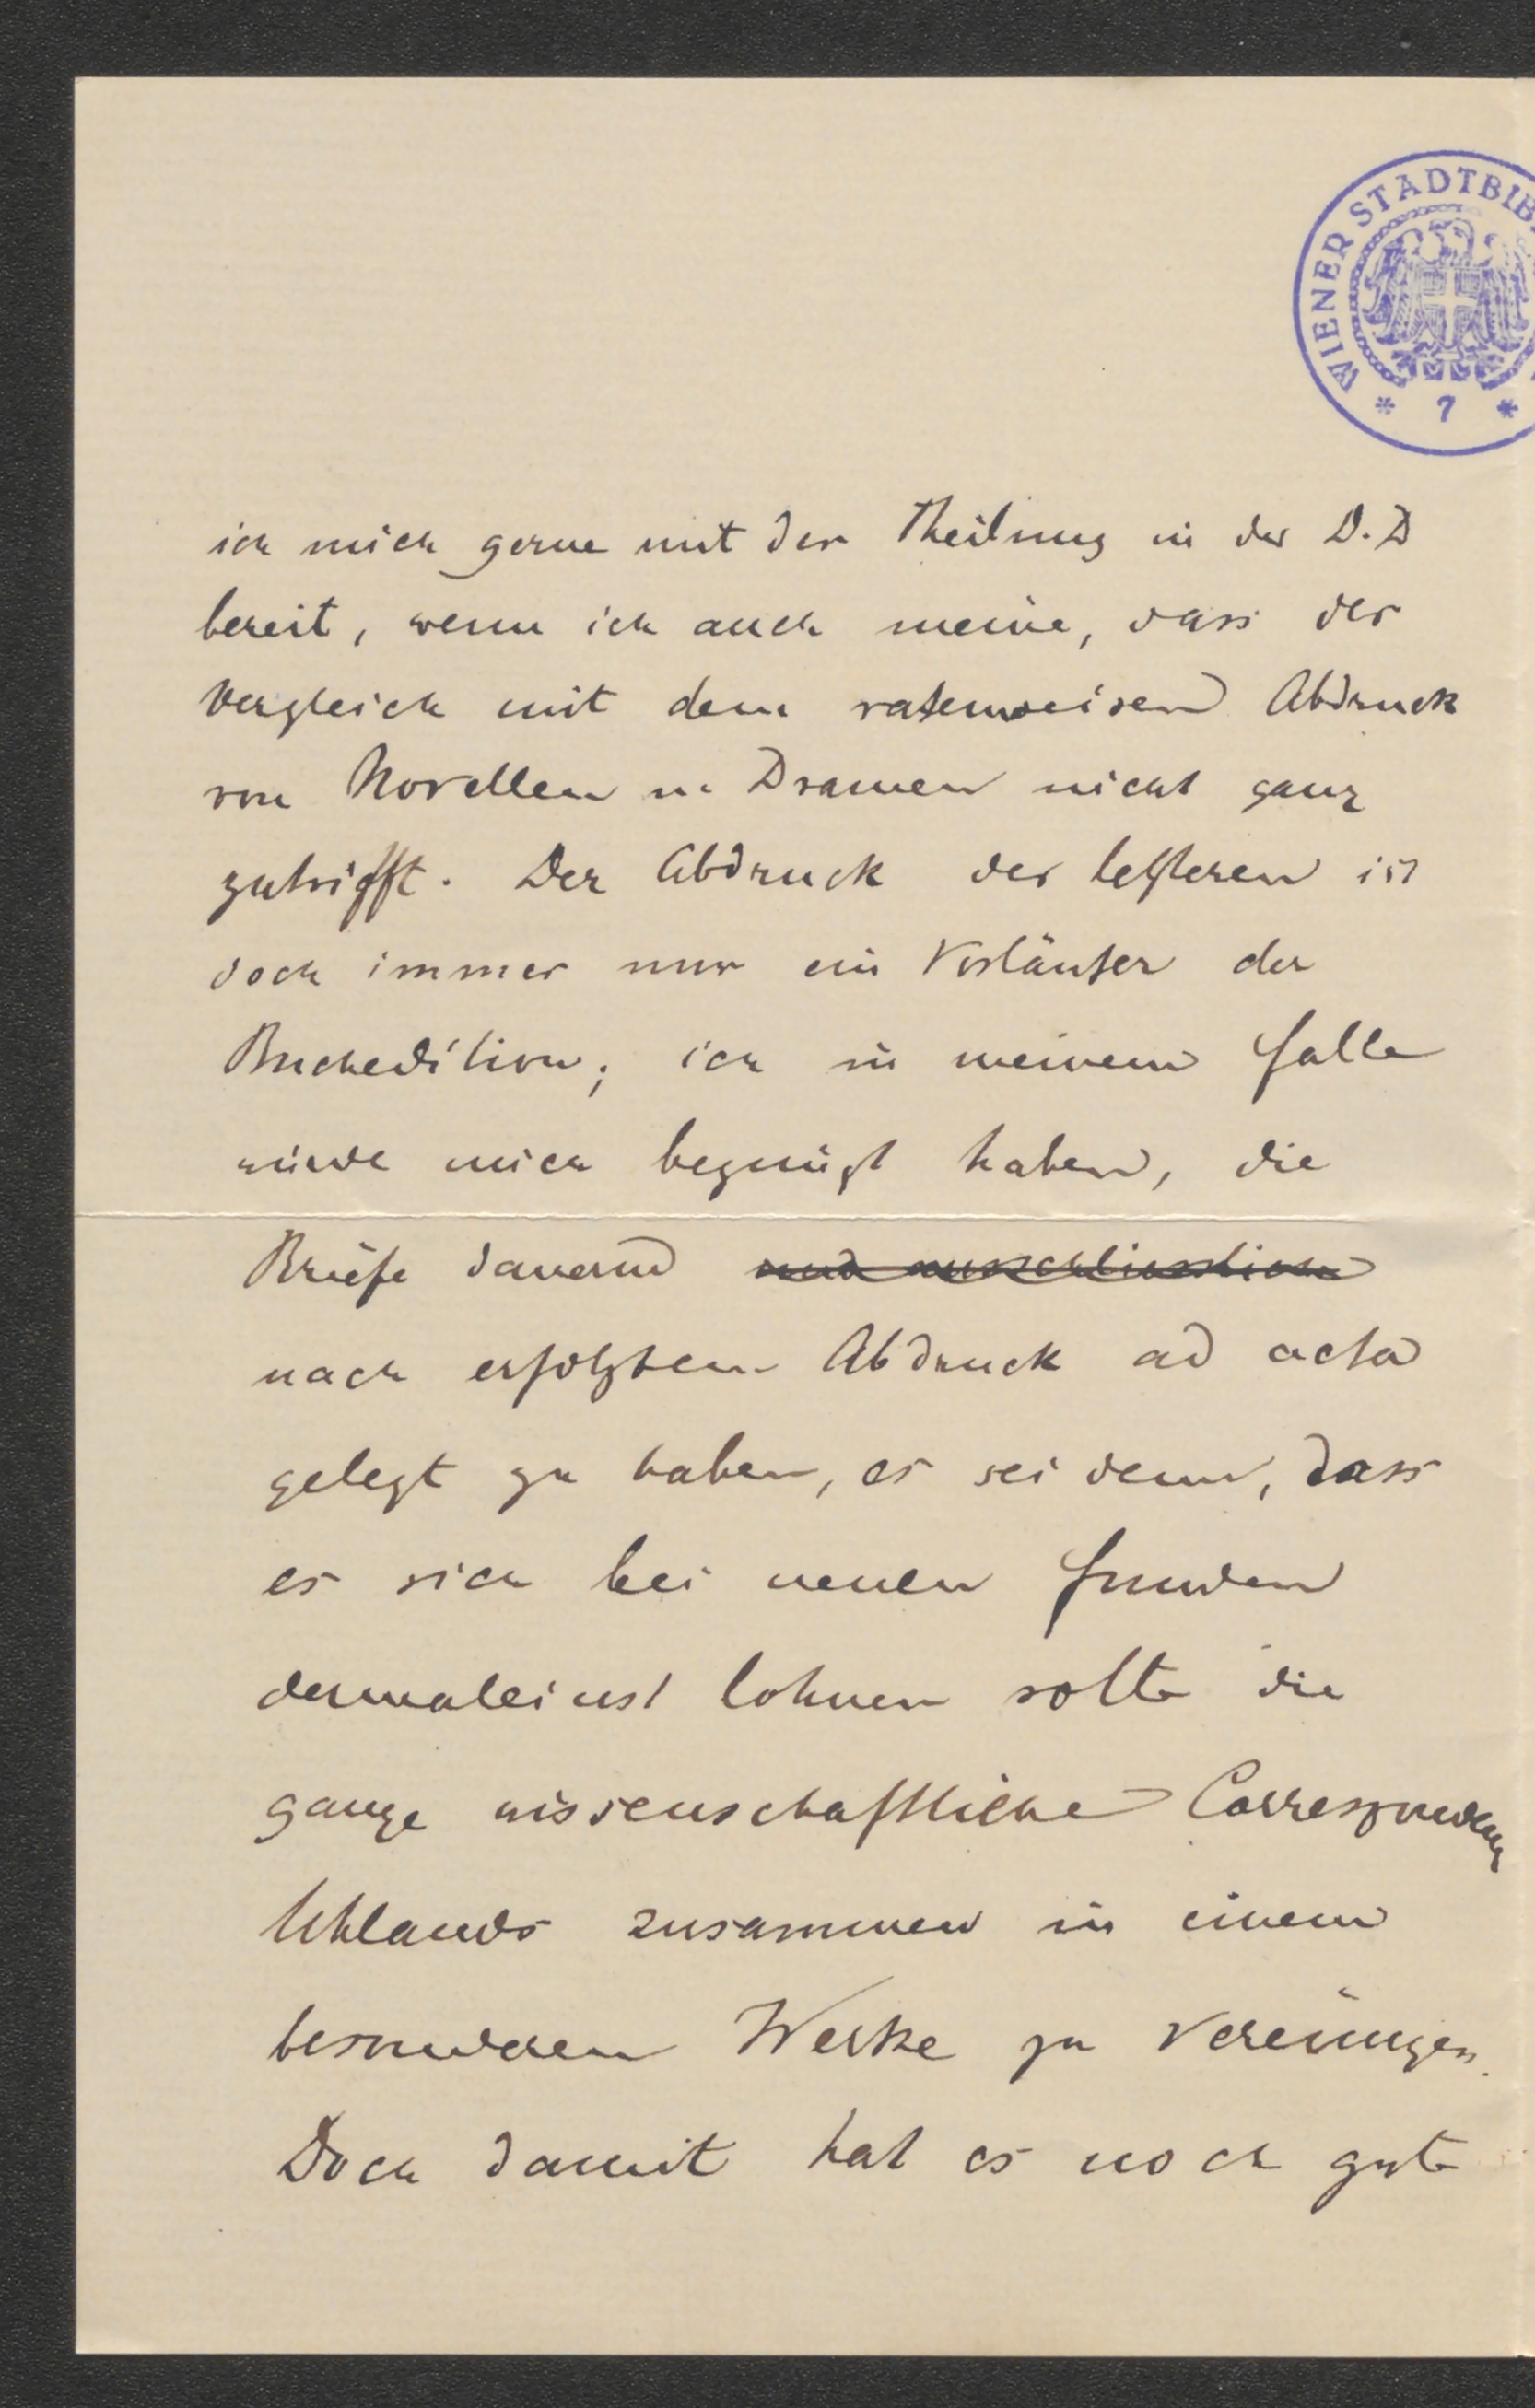 WIENER STADTBIB
* 7 *
ich mich gerne mit der Theilung in der D.D
bereit, wenn ich auch meine, dass der
Vergleich mit dem ratenweisen Abdruck
von Novellen u. Dramen nicht ganz
zutrifft. Der Abdruck der letzteren ist
doch immer nur ein Vorläufer der
Buchedition; ich in meinem Falle
würde mich begnügt haben, die
Briefe dauernd und ausschliesslich
nach erfolgtem Abdruck ad acta
gelegt zu haben, es sei denn, dass
es sich bei neuen Funden
dermaleinst lohnen sollte die
ganze wissenschaftliche Correspondenz
Uhlands zusammen in einem
besonderen Werke zu vereinigen.
Doch damit hat es noch gute